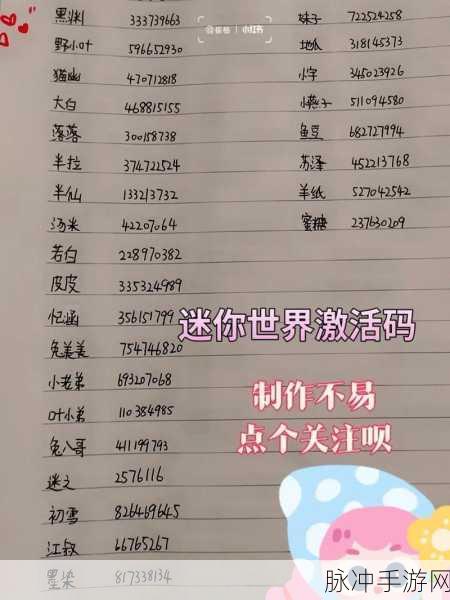 黑渊 333739663
野小叶 596652930
猫幽 470712818
大白 468815155
落落 300158738
半拉 374722524
半仙 133213732
汤米 42207064
若白 228970382
皮皮 335324989
忆函 356151799
兔美美 754746820
小老弟 693207068
叶小弟 110384985
兔八哥 411199793
迷之 2576116
初雪 826469645
江叙 66765267
墨染 817338134
妹子 722524258
地瓜 318145373
小字 345023926
小燕子 511094580
鱼豆 682727994
苏泽 452213768
羊纸 527042542
蜜糖 237630209
小红书
迷你世界激活码
制作不易
点个关注呗
脉冲手游网